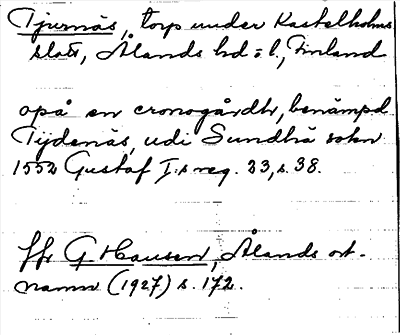 Tjurnäs, torp under Kastelholms
slott, Ålands hd o. l., Finland
opå en cronogårdh, benämpd
Tijdenäs, udi Sundha sokn
1552 Gustaf I:s reg. 23, s. 38.
Jfr G. Hausen, Ålands ort-
namn (1927) s. 172.